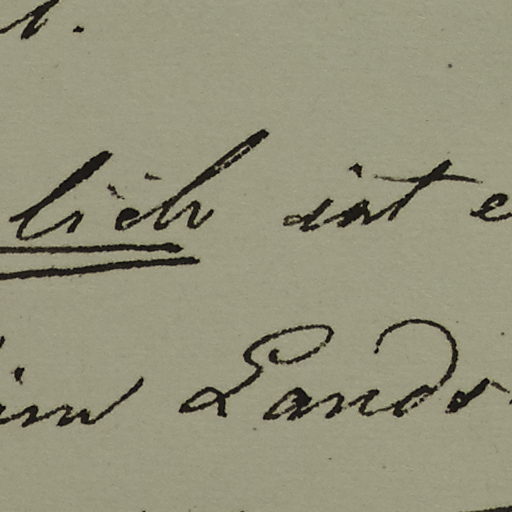 lich ist e
Lands